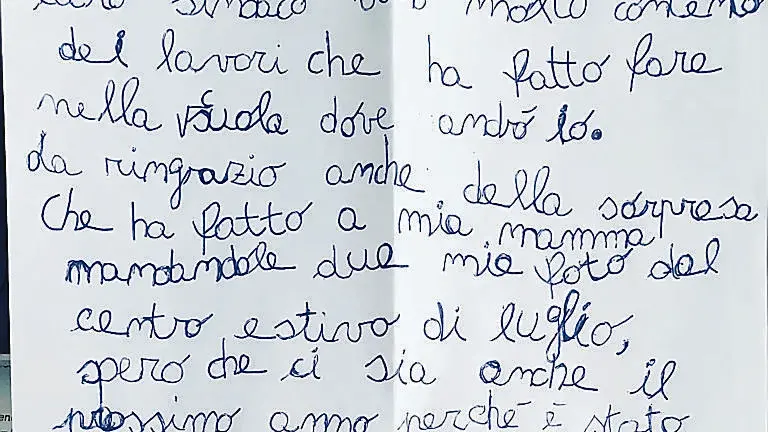 caro sindaco sono molto contento
dei lavori che ha fatto fare
nella scuola dove andrò io.
La ringrazio anche della sorpresa
Che ha fatto a mia mamma
mandandole due mie foto del
centro estivo di luglio,
spero che ci sia anche il
prossimo anno perché è stato